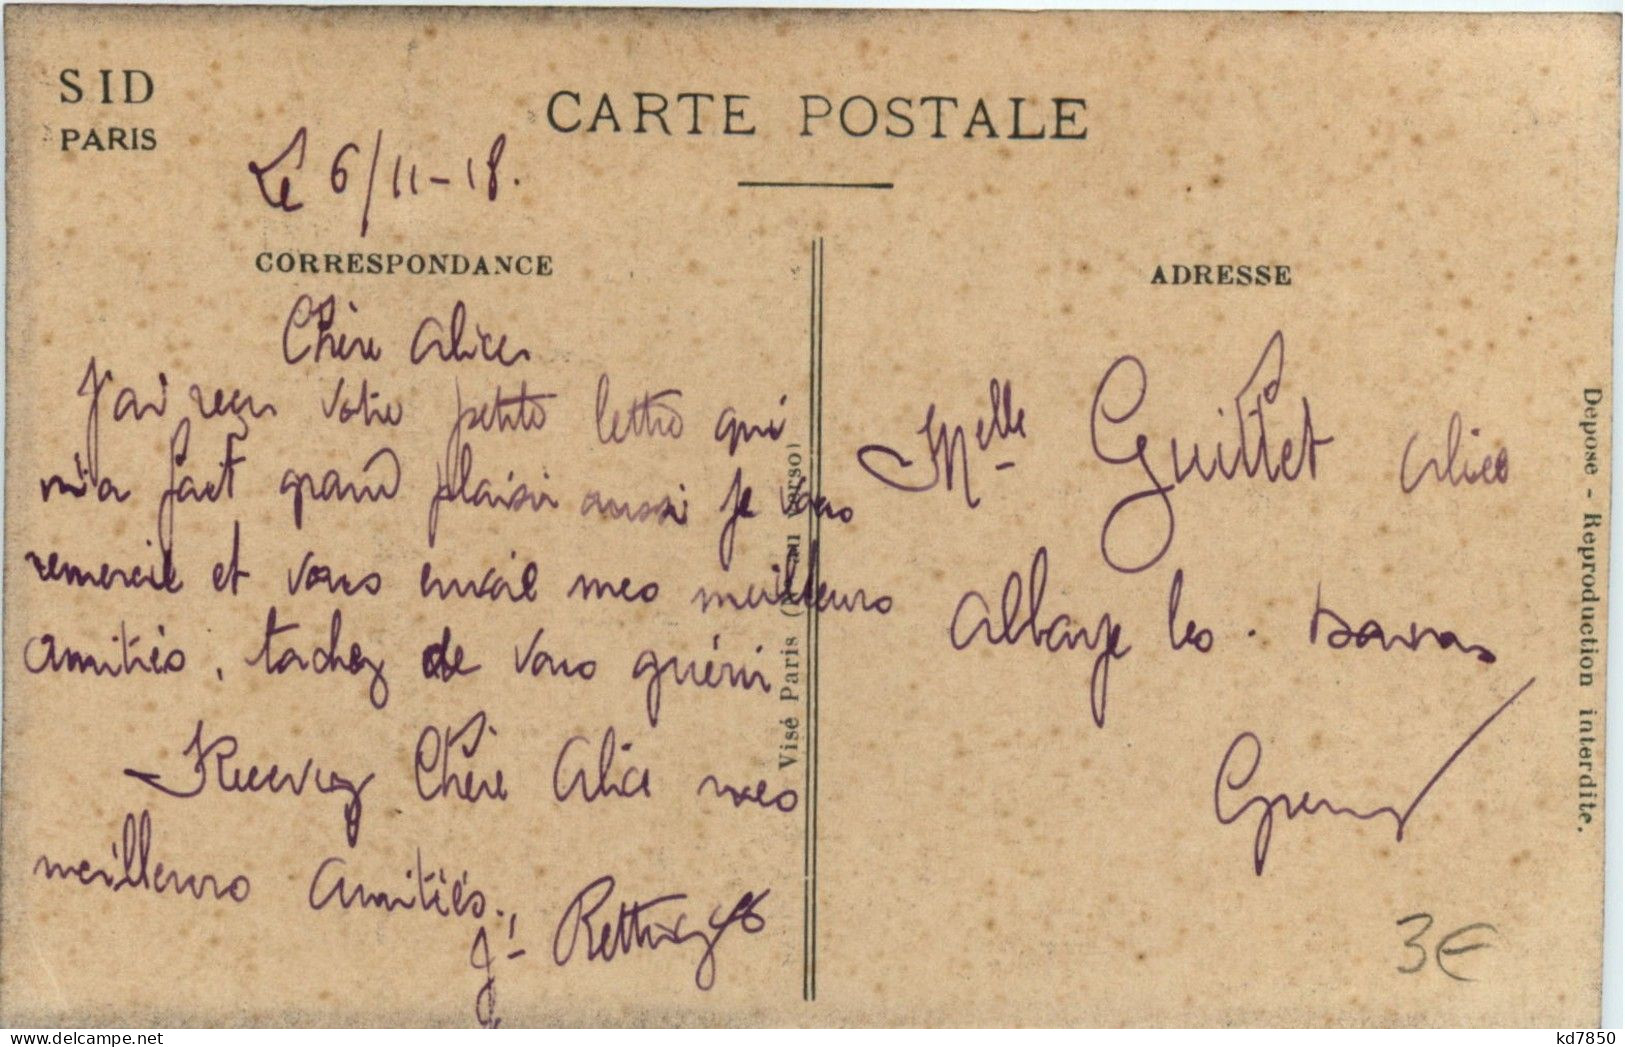 SID
PARIS
CARTE POSTALE
Le 6/11-18.
CORRESPONDANCE
Chère Alice
J'ai reçu votre petite lettre qui
m'a fait grand plaisir aussi je vous
remercie et vous envoie mes meilleurs
amitiés, tachez de vous guérir
Recevez Chère Alice mes
meilleurs amitiés.
J.
Visé Paris (N° au verso)
ADRESSE
Melle Guittet Alice
Abbaye les
3€
Déposé - Reproduction interdite.
kd7850